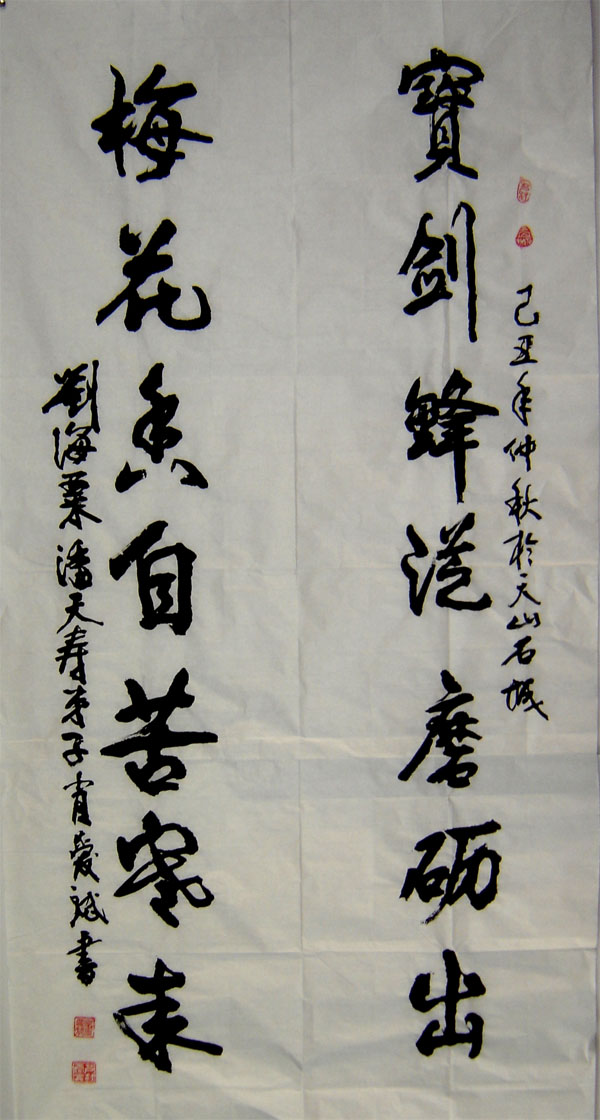 己丑年仲秋於天山石城
寶剑鋒從磨砺出
梅花香自苦寒来
劉海粟潘天寿弟子肖愛斌書